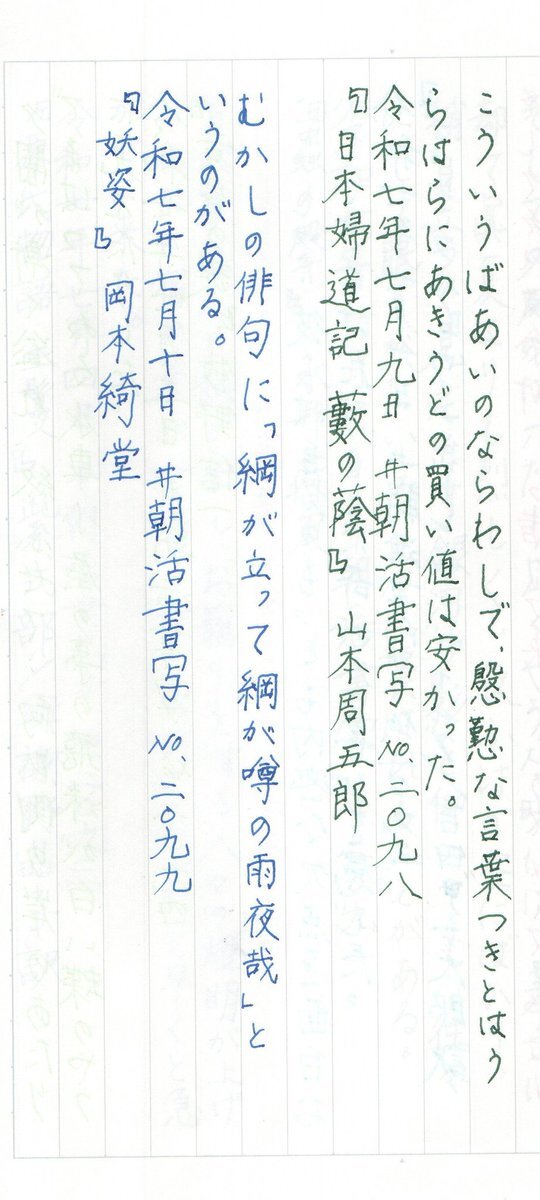 こういうばあいのならわしで、慇懃な言葉つきとはう
らはらにあきうどの買い値は安かった。
令和七年七月九日　#朝活書写　No.二〇九八
『日本婦道記　藪の蔭』　山本周五郎
むかしの俳句に「綱が立って綱が噂の雨夜哉」と
いうのがある。
令和七年七月十日　#朝活書写　No.二〇九九
『妖姿』　岡本綺堂